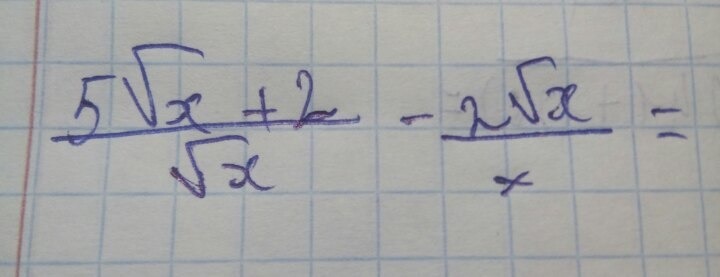 (5√x + 2)/√x - (2√x)/x =